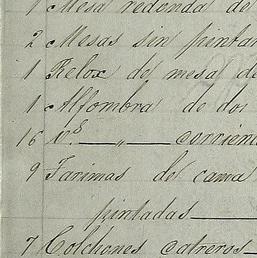 1 Mesa redonda de
2 Mesas sin pintar
1 Relox de mesa de
1 Alfombra de dos
16 v.s — " — corrien
9 Tarimas de cama
pintadas —
7 Colchones catreros —